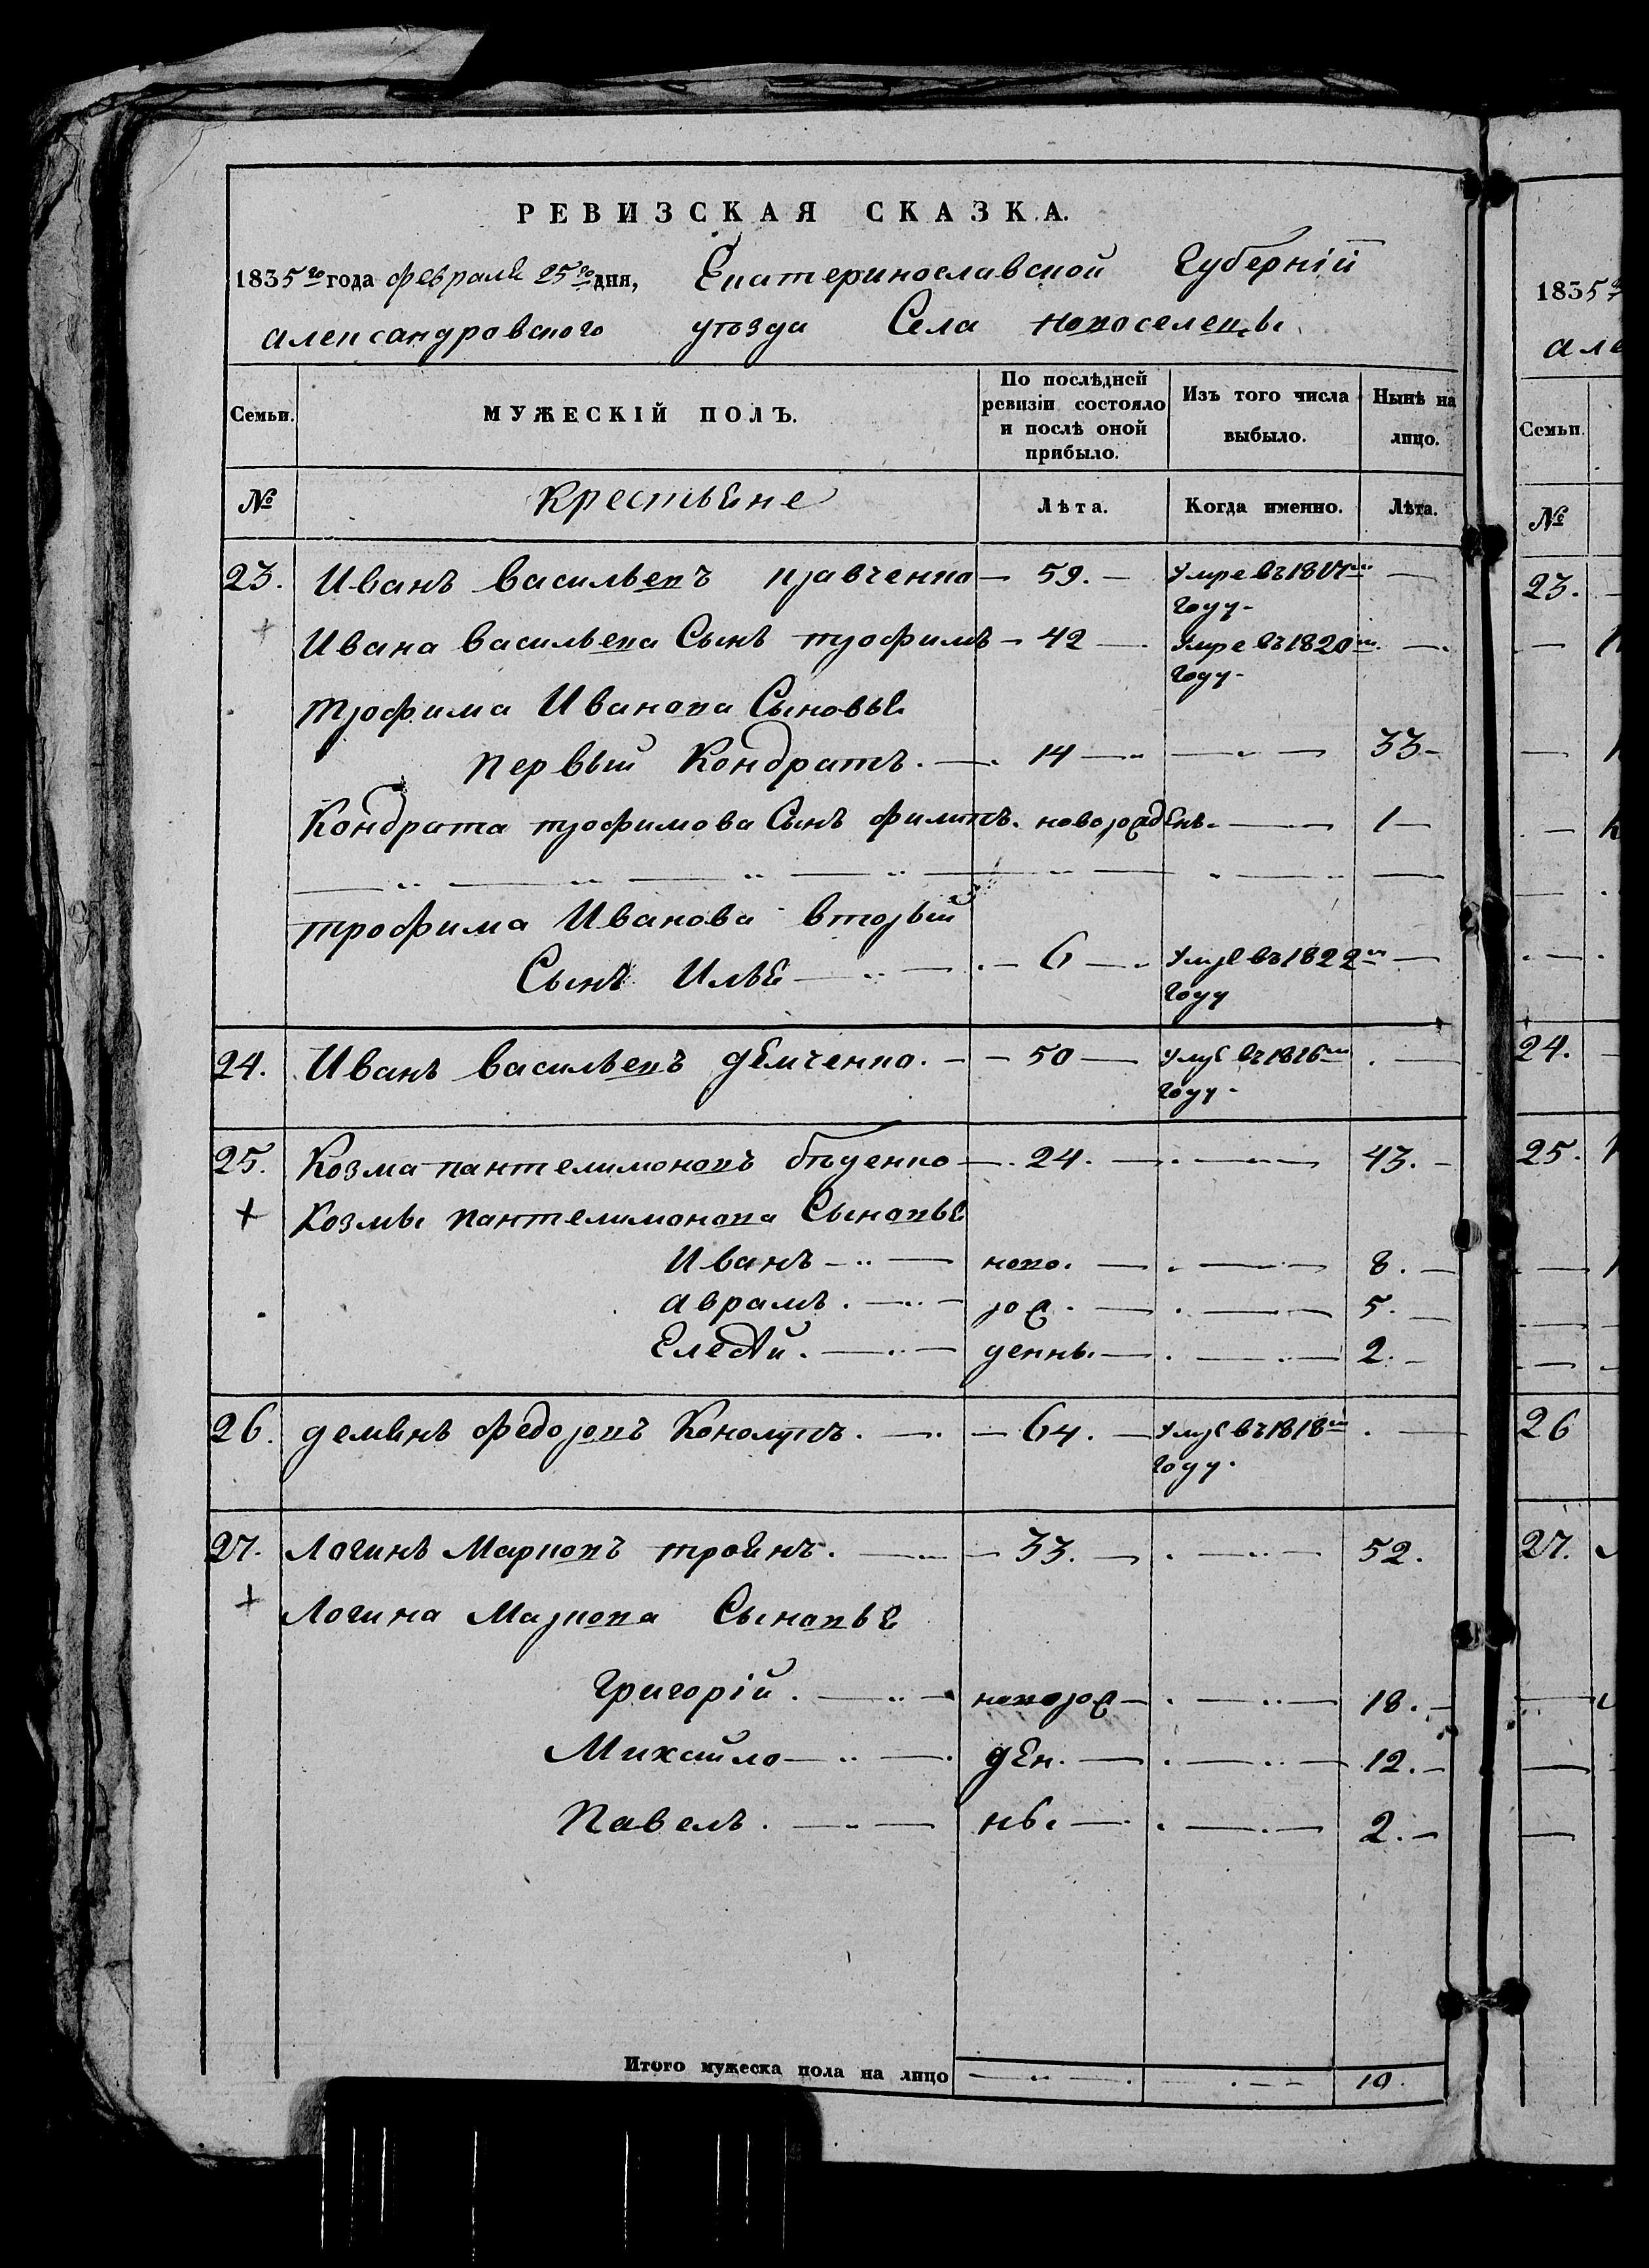 РЕВИЗСКАЯ СКАЗКА.
1835го года февраля 25го дня, Екатеринославской Губерніи
александровского уѣзда Села новоселецъ
Семьи. МУЖЕСКІЙ ПОЛЪ. По послѣдней ревизіи состояло и послѣ оной прибыло. Изъ того числа выбыло. Нынѣ на лицо.
№ крестьяне Лѣта. Когда именно. Лѣта.
23. Иванъ васильевъ кравченко — 59. — умре въ 1817м году — —
Ивана васильева Сынъ трофимъ — 42 — умре въ 1820м году — —
трофима Иванова Сыновья
первый Кондратъ. — 14 — — 33 —
Кондрата трофимова Сынъ филипъ. новорожденъ. — 1 —
трофима Иванова вторый
Сынъ Илья — 6 — умре въ 1822м году —
24. Иванъ васильевъ демченко. — 50 — умре въ 1816м году — —
25. Козма пантелимоновъ — 24. — — 43. —
+ Козмы пантелимонова Сыновья
Иванъ — ново. — — 8. —
аврамъ. — рож. — — 5. —
— денны. — — 2. —
26. демянъ федоровъ — 64. — умре въ 1818м году. — —
27. Логинъ Марковъ троянъ. — 33. — — 52.
+ Логина Маркова Сыновья
Григорій. — новорож — — 18. —
Михайло — ден. — — 12. —
Павелъ. — ны. — — 2. —
Итого мужеска пола на лицо — — 10.
1835го
але
Семьи.
№
23.
24.
25.
26
27.